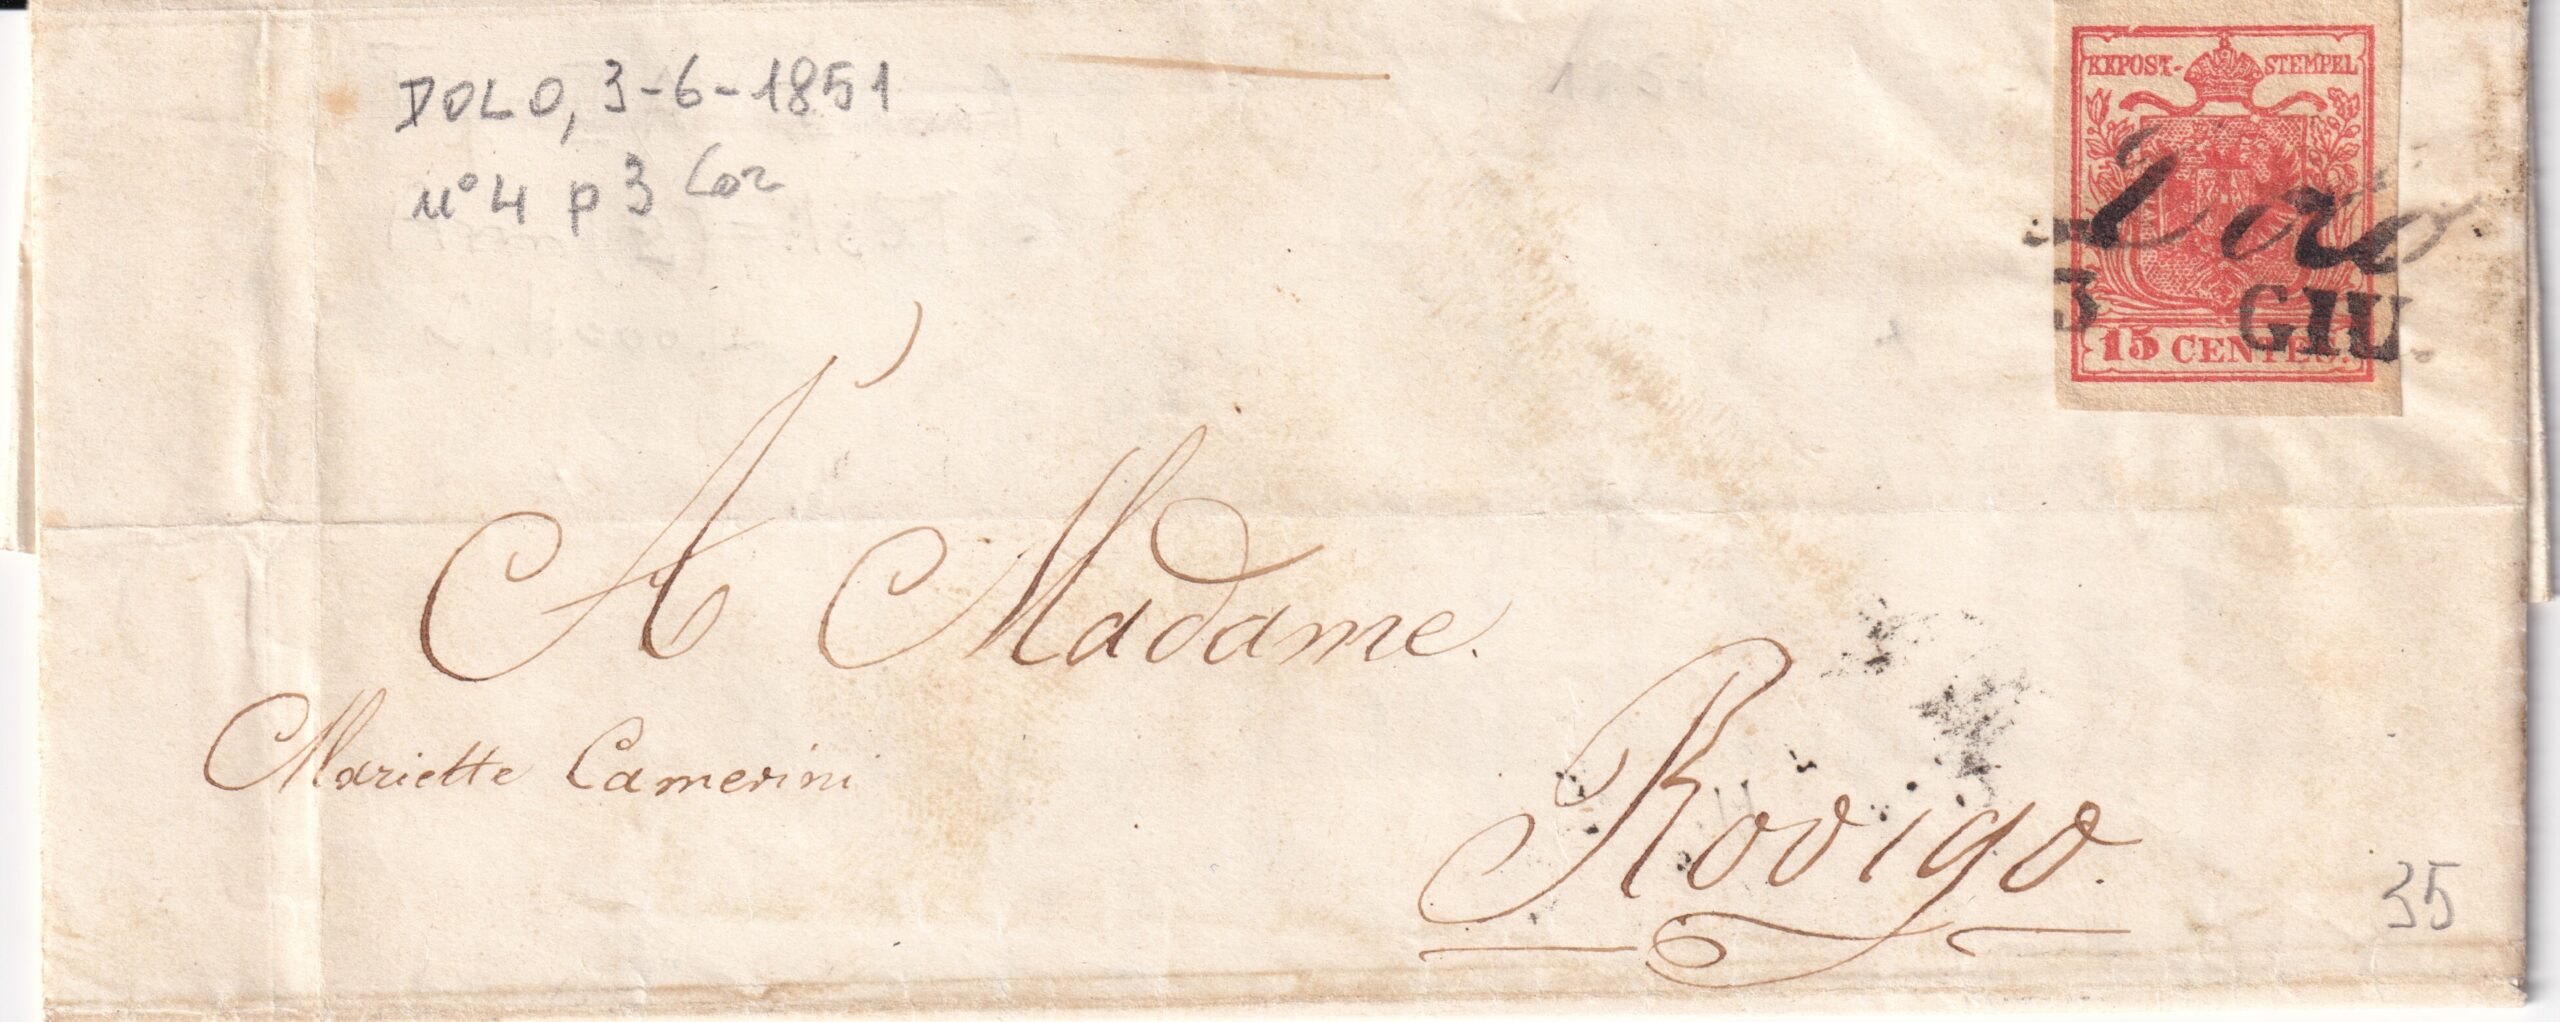 DOLO, 3-6-1851
n° 4 p 3 Cor
KKPOST-STEMPEL
Dolo
3 GIU.
15 CENTES.
A Madame.
Mariette Camerini
Rovigo.
35